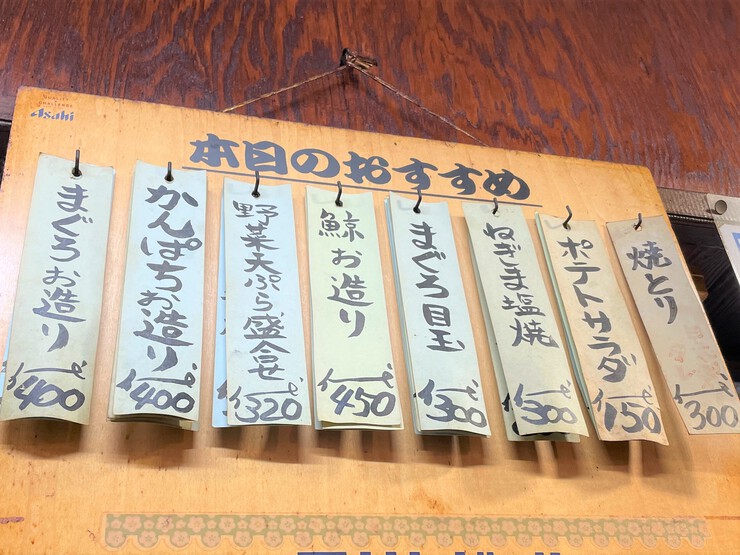 QUALITY
CHALLENGE
Asahi
本日のおすすめ
まぐろお造り
一、400
かんぱちお造り
一、400
野菜天ぷら盛合せ
一、320
鯨お造り
一、450
まぐろ目玉
一、300
ねぎま塩焼
一、300
ポテトサラダ
一、150
焼とり
一、300